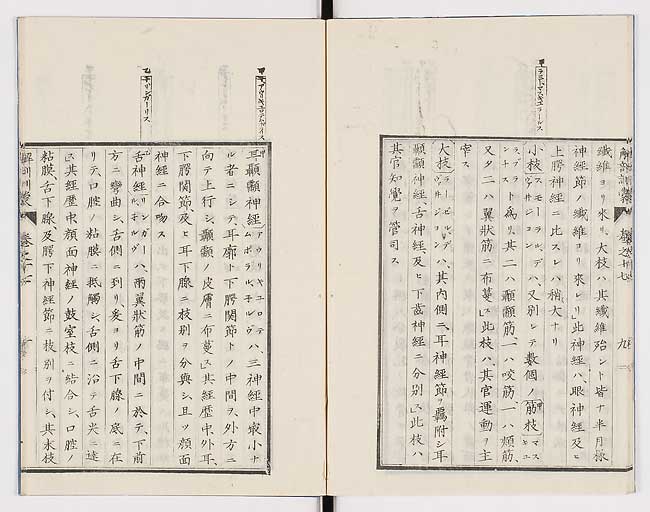 甲ラミ、マスキュラールス
纎維ヨリ來リ、大枝ハ其纎維殆ント皆ナ半月様
神經節ノ纎維ヨリ來レリ」此神經ハ、眼神經及ヒ
上腭神經ニ比スレハ稍大ナリ
小枝ハ、又別シテ數個ノ筋枝
ト爲リ、其二ハ顳顬筋、一ハ咬筋、一ハ頰筋、
又タ二ハ翼狀筋ニ布蔓ス」此枝ハ、其官運動ヲ主
宰ス
大枝ハ、其内側ニ耳神經節ヲ屬附シ耳
顳顬神經、舌神經及ヒ下齒神經ニ分別ス」此枝ハ
其官知覺ヲ管司ス
九
耳顳顬神經ハ、三神經中最小ナ
ル者ニシテ、耳廓ト下腭關節トノ中間ヲ、外方ニ
向テ上行シ、顳顬ノ皮膚ニ布蔓ス」其經歴中、外耳、
下腭關節及ヒ耳下腺ニ枝別ヲ分與シ、且ツ顔面
神經ニ合吻ス
乙リンガーリス
舌神經ハ、兩翼狀筋ノ中間ニ於テ、下前
方ニ彎曲シ、舌側ニ到リ、爰ヨリ舌下腺ノ底ニ在
リテ、口腔ノ粘膜ニ抵觸シ、舌側ニ沿テ舌尖ニ達
ス」其經歴中、顔面神經ノ鼓室枝ニ結合シ、口腔ノ
粘膜舌下腺及腭下神經節ニ枝別ヲ付シ、其末枝